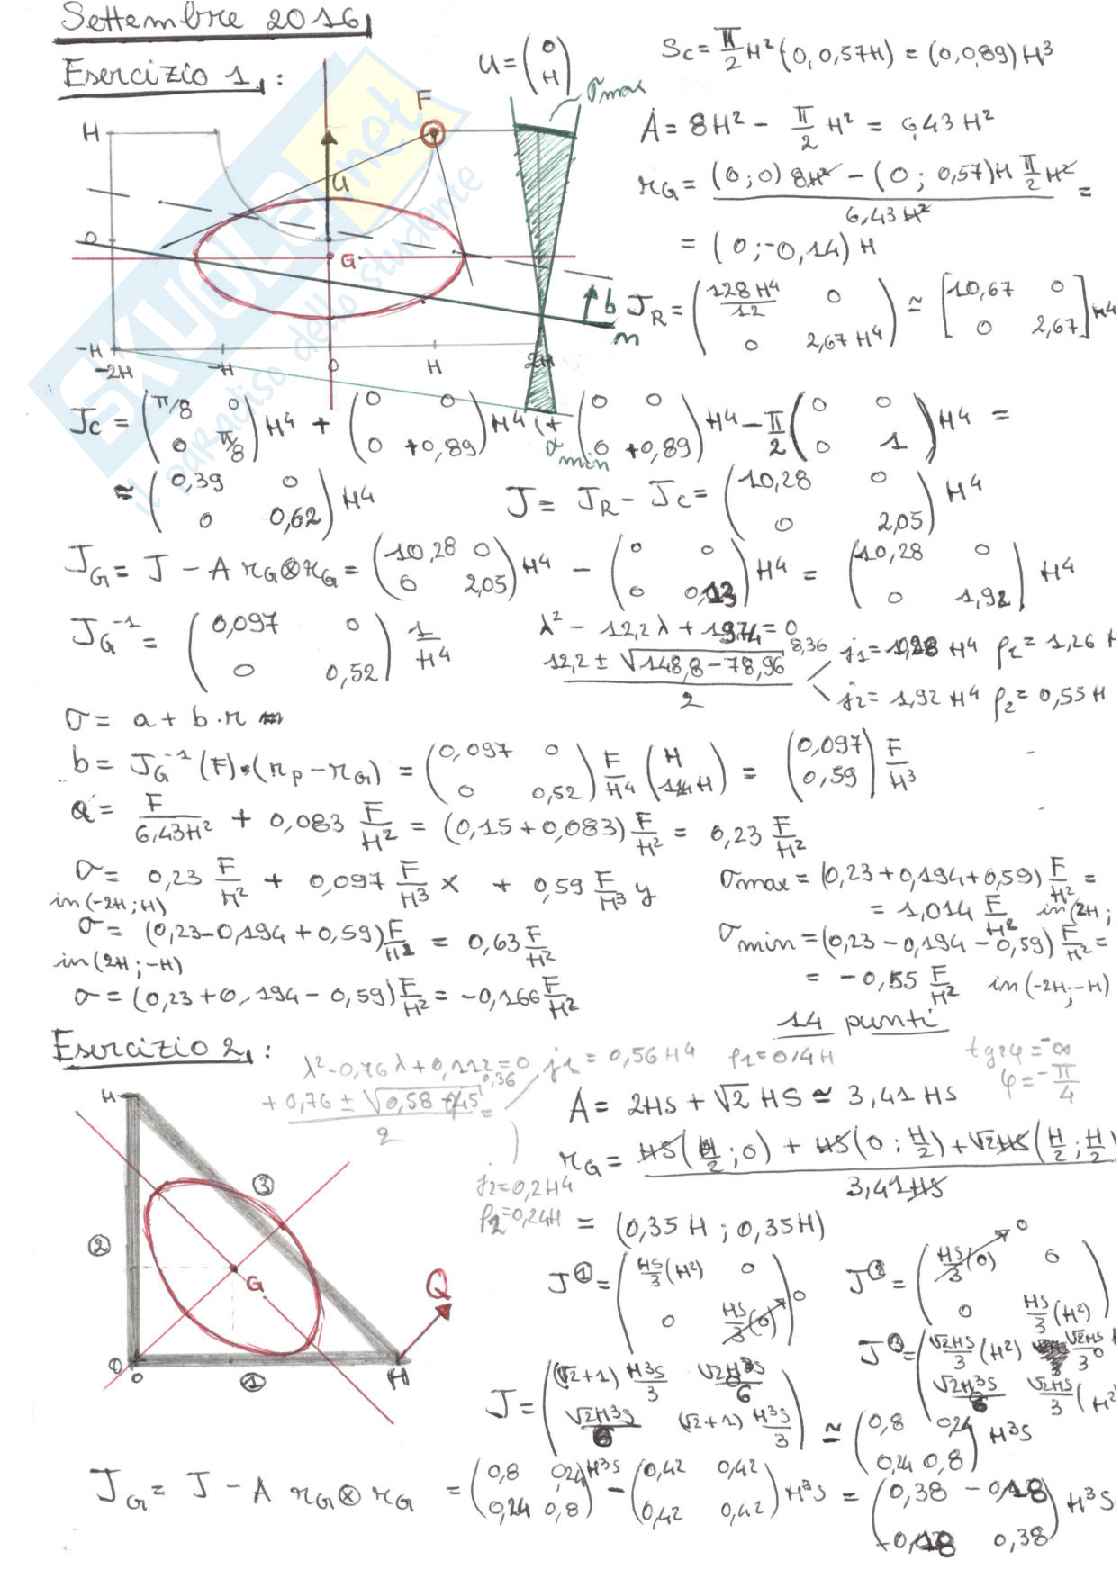 Settembre 2016
Esercizio 1:
u = (0 H)
Sc = π/2 H² (0, 0,57H) = (0, 0,89) H³
σmax
F
A = 8H² - π/2 H² = 6,43 H²
H
u
rG = ((0;0) 8H² - (0; 0,57)H π/2 H²) / 6,43 H² =
= (0; -0,14) H
0
G
b
n
JR = (128H⁴/12 0 0 2,67 H⁴) ≃ [10,67 0 0 2,67] H⁴
-H
-2H -H 0 H 2H
σmin
Jc = (π/8 0 0 π/8) H⁴ + (0 0 0 +0,89) H⁴ (+ (0 0 0 +0,89) H⁴ - π/2 (0 0 0 1) H⁴ =
≃ (0,39 0 0 0,62) H⁴
J = JR - Jc = (10,28 0 0 2,05) H⁴
JG = J - A rG⊗rG = (10,28 0 0 2,05) H⁴ - (0 0 0 0,13) H⁴ = (10,28 0 0 1,92) H⁴
JG⁻¹ = (0,097 0 0 0,52) 1/H⁴
λ² - 12,2λ + 19,74 = 0
(12,2 ± √(148,8 - 78,96)) / 2
8,36
j1 = 10,28 H⁴ ρ1 = 1,26 H
j2 = 1,92 H⁴ ρ2 = 0,55 H
σ = a + b·r
b = JG⁻¹ (F)·(rp - rG) = (0,097 0 0 0,52) F/H⁴ (H 1,14H) = (0,097 0,59) F/H³
a = F/6,43H² + 0,083 F/H² = (0,15 + 0,083) F/H² = 0,23 F/H²
σ = 0,23 F/H² + 0,097 F/H³ x + 0,59 F/H³ y
σmax = (0,23 + 0,194 + 0,59) F/H² =
= 1,014 F/H² in (2H;
in (-2H; H)
σ = (0,23 - 0,194 + 0,59) F/H² = 0,63 F/H²
σmin = (0,23 - 0,194 - 0,59) F/H² =
= -0,55 F/H² in (-2H; -H)
in (2H; -H)
σ = (0,23 + 0,194 - 0,59) F/H² = -0,166 F/H²
14 punti
Esercizio 2:
λ² - 0,76λ + 0,112 = 0
j1 = 0,56 H⁴ ρ1 = 0,4 H
tg2φ = -∞
φ = -π/4
(+0,76 ± √(0,58 - 0,45)) / 2 =
0,36
j2 = 0,2 H⁴
ρ2 = 0,24H
H
③
②
G
Q
0
0
①
H
A = 2HS + √2 HS ≃ 3,41 HS
rG = (HS(H/2; 0) + HS(0; H/2) + √2HS(H/2; H/2)) / 3,41HS
= (0,35 H; 0,35H)
J① = (HS/3 (H²) 0 0 HS/3 (0)) 0
J② = (HS/3 (0) 0 0 HS/3 (H²)) 0
J③ = (√2HS/3 (H²) √2HS/3 √2H³S/6 √2HS/3 (H²
J = ((√2+1) H³S/3 √2H³S/6 √2H³S/6 (√2+1) H³S/3) ≃ (0,8 0,24 0,24 0,8) H³S
JG = J - A rG⊗rG = (0,8 0,24 0,24 0,8) H³S - (0,42 0,42 0,42 0,42) H³S = (0,38 -0,18 -0,18 0,38) H³S
SKUOLA.net
il paradiso dello studente